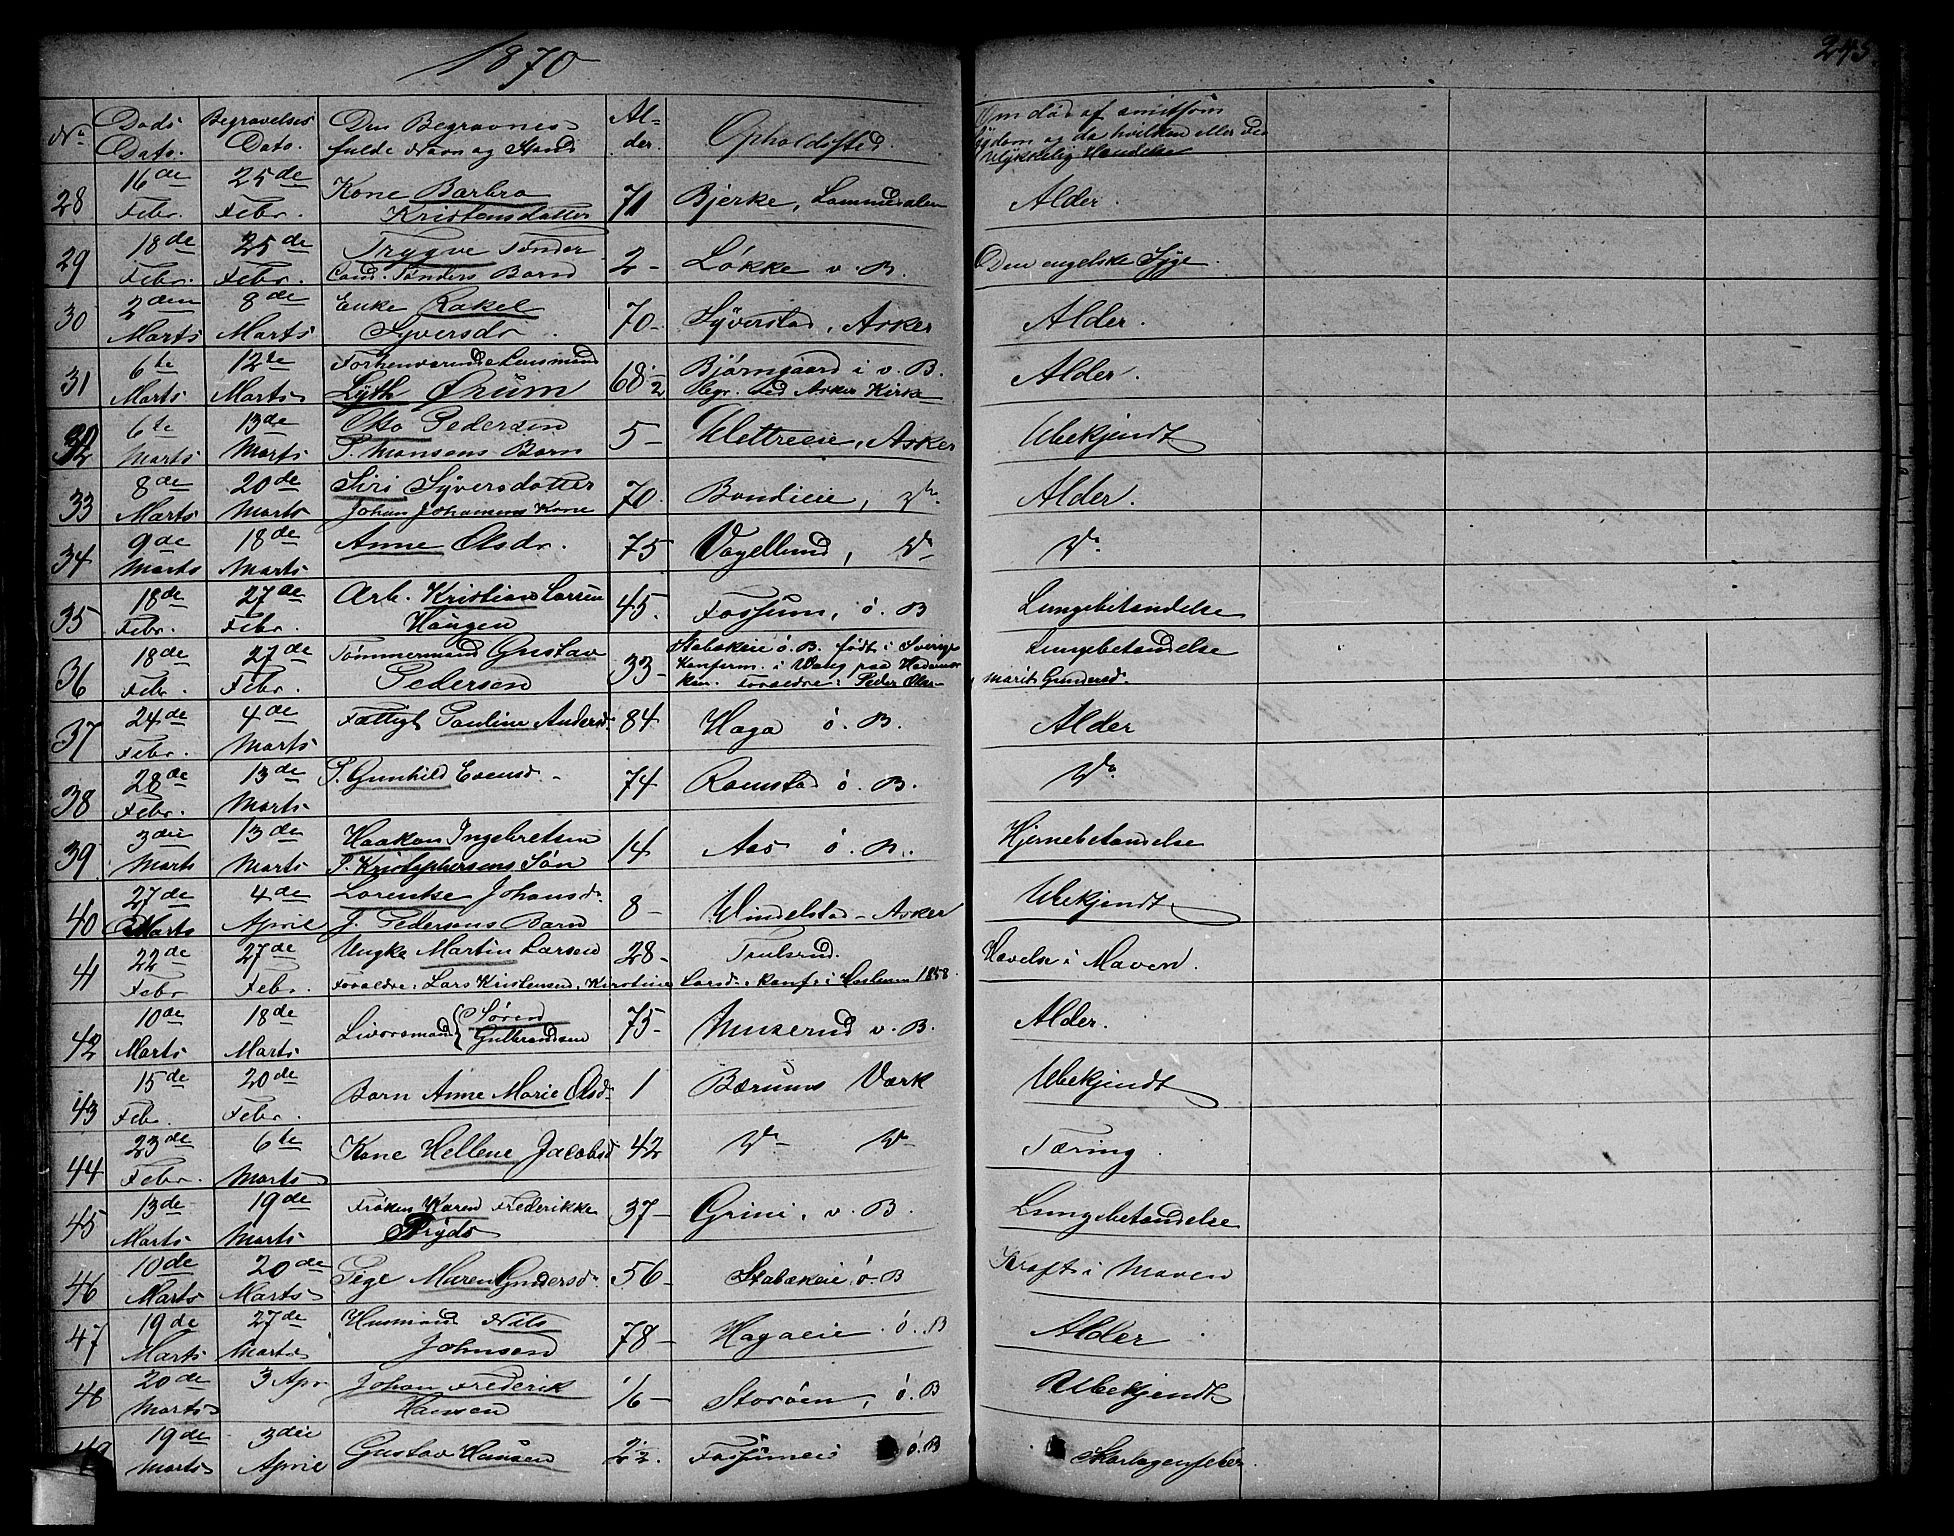 1870
243
No Døds Dato. Begravelses Dato. Den Begravnes fulde Navn og Stand Alder. Opholdssted. Om død af smitsom Sygdom og da hvilken eller ved Ulykkelig Hændelse
28 16de Febr. 25de Febr. Kone Barbra Kristensdatter 71 Bjerke, Lommedalen Alder.
29 18de Febr. 25de Febr. Trygve Tønder Cand. Tønders Barn 2 - Løkke v. B. Den engelske Syge.
30 2den Marts 8de Marts Enke Rakel Syversdr. 70. Syverstad, Asker Alder.
31 6te Marts 12te Marts Forhenværende Lensmand Lyth Ørum 68 1/2 Bjørngaard i v. B. Begr. ved Asker Kirke Alder.
32 6te Marts 13de Marts Otto Pedersen P. Monsens Barn 5 - Wettreeie, Asker Ubekjendt
33 8de Marts 20de Marts Siri Syversdatter Johan Johansens Kone 70. Bondieie, Do. Alder.
34 9de Marts 18de Marts Anne Olsdr. 75 Vogellund, Do Do
35 18de Febr. 27de Febr. Arb. Kristian Larsen Haugen 45. Fossum, ø. B Lungebetændelse
36 18de Febr. 27de Febr. Tømmermand Gustav Pedersen 33 - Stabækeie ø. B. født i Sverige Konferm. i Vang paa Hedemarken. Forældre: Peder Olsen Marit Gundersd. Lungebetændelse
37 24de Febr. 4de Marts Fattigl. Pauline Andersd. 84 Haga ø. B. Alder
38 28de Febr. 13de Marts P. Gunhild Evensd. - 74 Ramstad ø. B. Do
39 3die Marts 13de Marts Haakon Ingebretsen P. Kristophersens Søn 14 Aas ø. B. Hjernebetændelse
40 27de Marts 4de April Lorentse Johansd. J. Pedersens Barn 8 - Windelstad - Asker Ubekjendt
41 22de Febr 27de Febr. Ungke Martin Larsen 28 - Trulsrud. Hævelse i Maven.
Forældre: Lars Kristensen, Kirstine Larsd. konf. i Haslum 1858.
42 10de Marts 18de Marts Livørsmand Søren Gulbrandsen 75 - Muserud v. B. Alder.
43 15de Feb. 20de Febr. Barn Anne Marie Olsd. 1 Bærums Værk Ubekjendt
44 23de Febr. 6te Marts Kone Hellene Jacobsd 42 Do Do Tæring.
45 13de Marts 19de Marts Frøken Karen Frederikke Prydz 37 - Grini, v. B. Lungebetændelse
46 10de Marts 20de Marts Pige Maren Gundersd. 56 - Stabækeie, ø. B Kræft i Maven
47 19de Marts 27de Marts Husmand Nils Johnsen 78 - Hagaeie ø. B Alder
48 20de Marts 3 Apr Johan Frederik Hansen 1/6 - Storøen, ø. B Ubekjendt.
49 19de Marts 3die April Gustav Hansen 2 1/2. Fossumeie ø. B Skarlagensfeber.